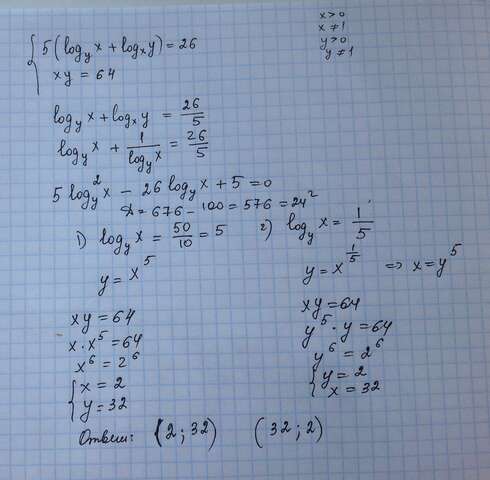 x>0
x≠1
y>0
y≠1
{ 5(log_y x + log_x y) = 26
xy = 64
log_y x + log_x y = 26/5
log_y x + 1/(log_y x) = 26/5
5 log_y^2 x − 26 log_y x + 5 = 0
D = 676 − 100 = 576 = 24^2
1) log_y x = 50/10 = 5
y = x^5
xy = 64
x·x^5 = 64
x^6 = 2^6
{ x = 2
y = 32
2) log_y x = 1/5
y = x^(1/5) ⇒ x = y^5
xy = 64
y^5·y = 64
y^6 = 2^6
{ y = 2
x = 32
Ответ: (2; 32) (32; 2)